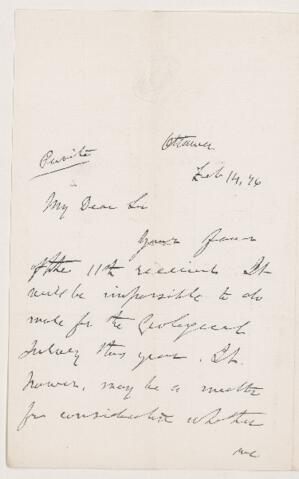 Private
Ottawa
Feb 14, 76
My Dear Sir
Your favor
of the 11th received. It
will be impossible to do
more for the Geological
Survey this year. It
however, may be a matter
for consideration whether
we